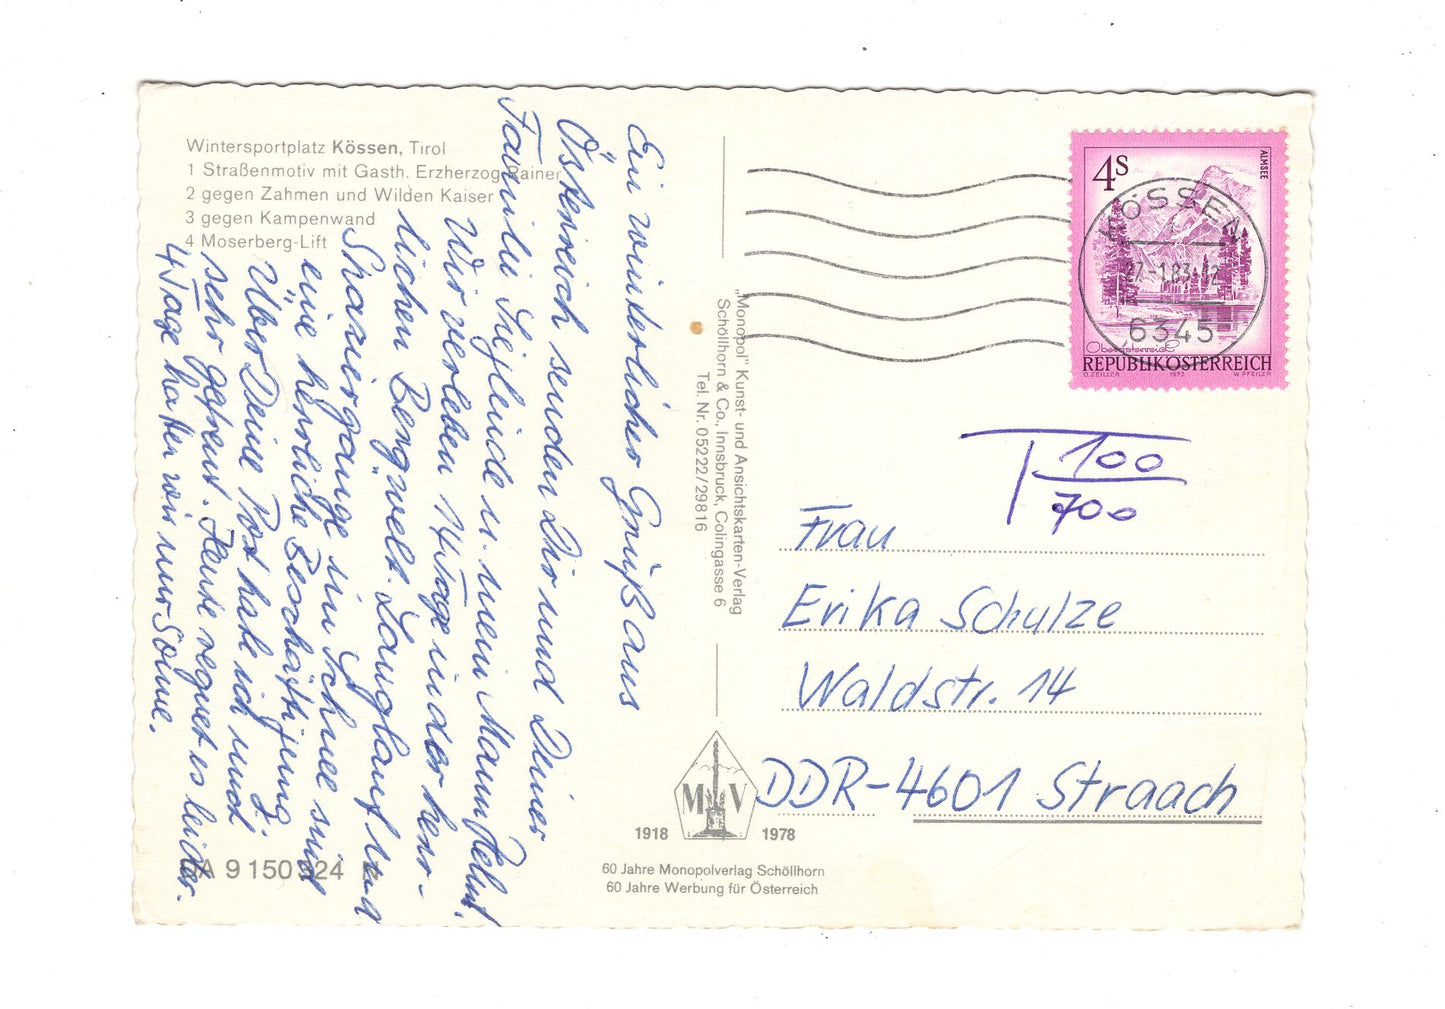 Wintersportplatz Kössen, Tirol
1 Straßenmotiv mit Gasth. Erzherzog Rainer
2 gegen Zahmen und Wilden Kaiser
3 gegen Kampenwand
4 Moserberg-Lift
Ein winterlicher Gruß aus
Österreich senden Dir und Deiner
Familie Sieglinde u. mein Mann Helmut.
Wir verleben 14 Tage in der herr-
lichen Bergwelt. Langlauf und
Spaziergänge im Schnee sind
eine herrliche Beschäftigung.
Über Deine Post habe ich mich
sehr gefreut. Heute regnet es leider.
4 Tage hatten wir nur Sonne.
9 150 324
„Monopol" Kunst- und Ansichtskarten-Verlag
Schöllhorn & Co., Innsbruck, Colingasse 6
Tel. Nr. 05222/29816
M V
1918 1978
60 Jahre Monopolverlag Schöllhorn
60 Jahre Werbung für Österreich
4S
ALMSEE
Oberösterreich
REPUBLIK ÖSTERREICH
O. ZEILLER 1973 W. PFEILER
KÖSSEN
27.-1.83-12
6345
T 100
700
Frau
Erika Schulze
Waldstr. 14
DDR-4601 Straach